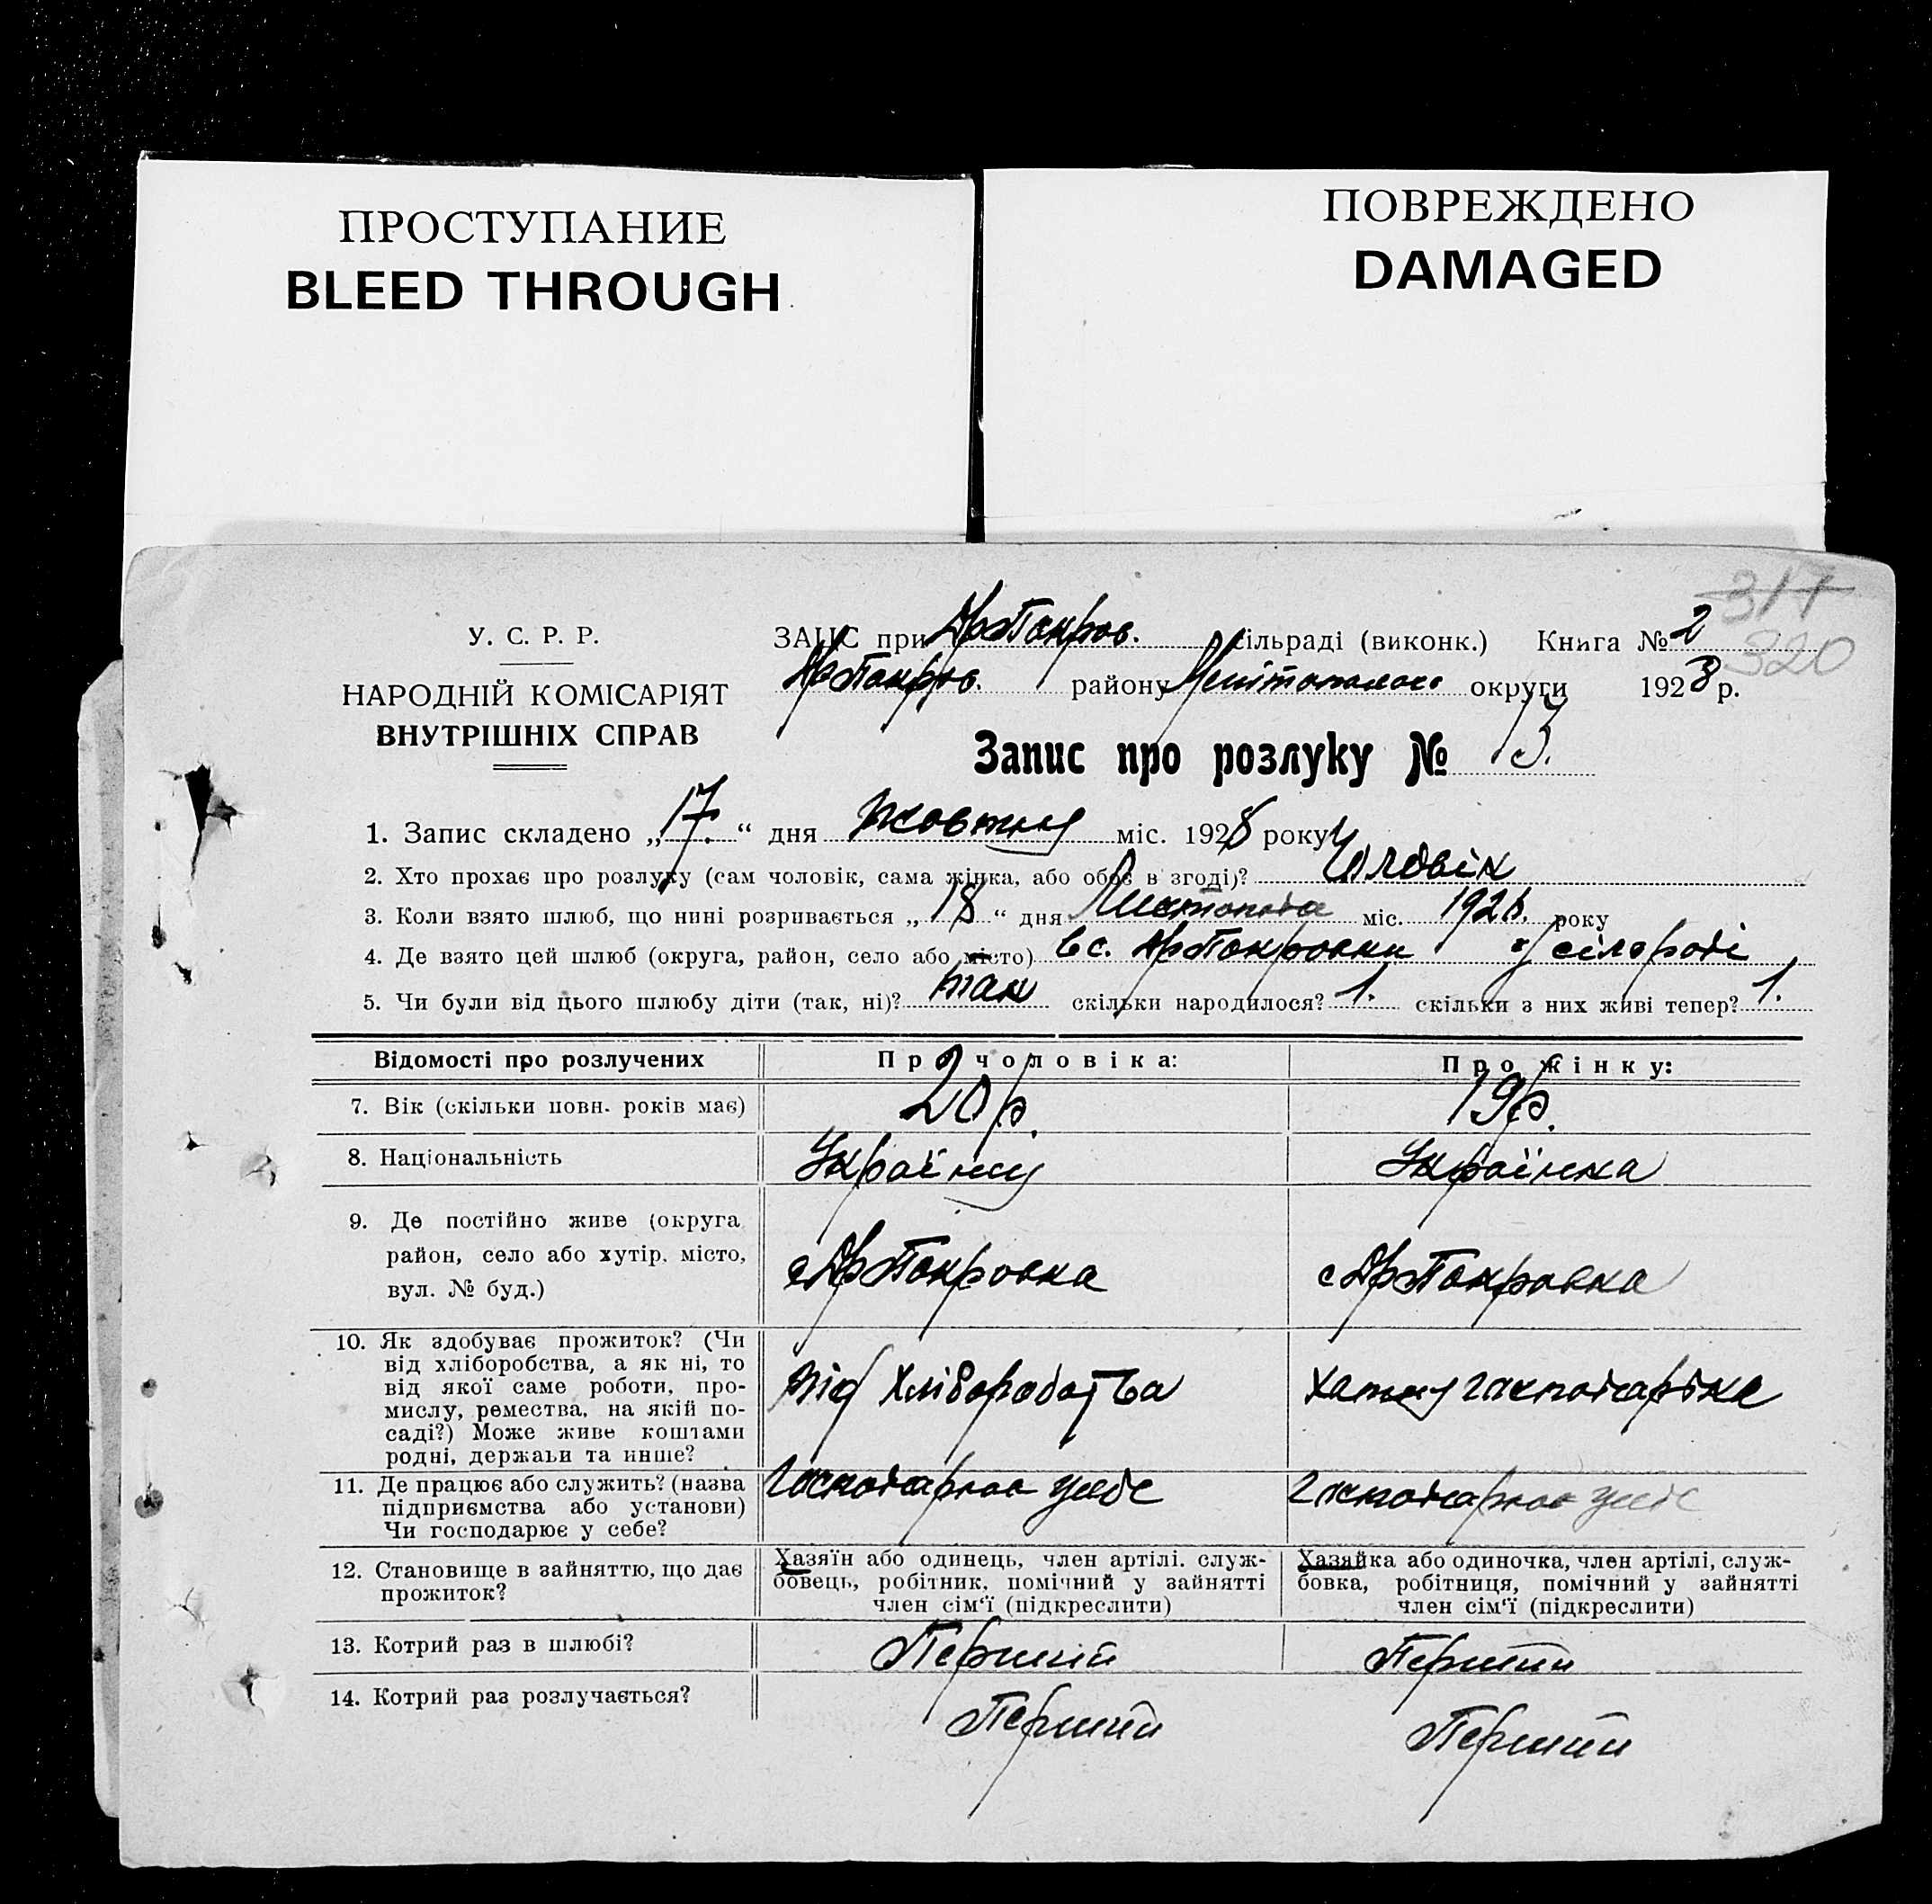 ПРОСТУПАНИЕ
BLEED THROUGH
ПОВРЕЖДЕНО
DAMAGED
317
320
У. С. Р. Р.
НАРОДНІЙ КОМІСАРІЯТ
ВНУТРІШНІХ СПРАВ
ЗАПИС при Яр Покров. сільраді (виконк.) Книга № 2
Покров. району округи 1928 р.
Запис про розлуку № 13.
1. Запис складено „17.“ дня жовтня міс. 1928 року
2. Хто прохає про розлуку (сам чоловік, сама жінка, або обоє в згоді)? Чоловік
3. Коли взято шлюб, що нині розривається „18“ дня Листопада міс. 1926. року
4. Де взято цей шлюб (округа, район, село або місто) в с. Покровки у сілораді
5. Чи були від цього шлюбу діти (так, ні)? так скільки народилося? 1. скільки з них живі тепер? 1.
Відомості про розлучених Про чоловіка: Про жінку:
7. Вік (скільки повн. років має) 20 р. 19 р.
8. Національність Українец Українка
9. Де постійно живе (округа район, село або хутір, місто, вул. № буд.)
с Покровка с Покровка
10. Як здобуває прожиток? (Чи
від хліборобства, а як ні, то
від якої саме роботи, про-
мислу, ремества, на якій по-
саді?) Може живе коштами
родні, держави та инше?
від Хліборобства Хатня господарька
11. Де працює або служить? (назва
підприємства або установи)
Чи господарює у себе?
Господарює у себе Господарює у себе
12. Становище в зайняттю, що дає
прожиток?
Хазяїн або одинець, член артілі. служ-
бовець, робітник, помічний у зайнятті
член сім'ї (підкреслити)
Хазяйка або одиночка, член артілі, служ-
бовка, робітниця, помічний у зайнятті
член сім'ї (підкреслити)
13. Котрий раз в шлюбі? Перший Перший
14. Котрий раз розлучається? Перший Перший